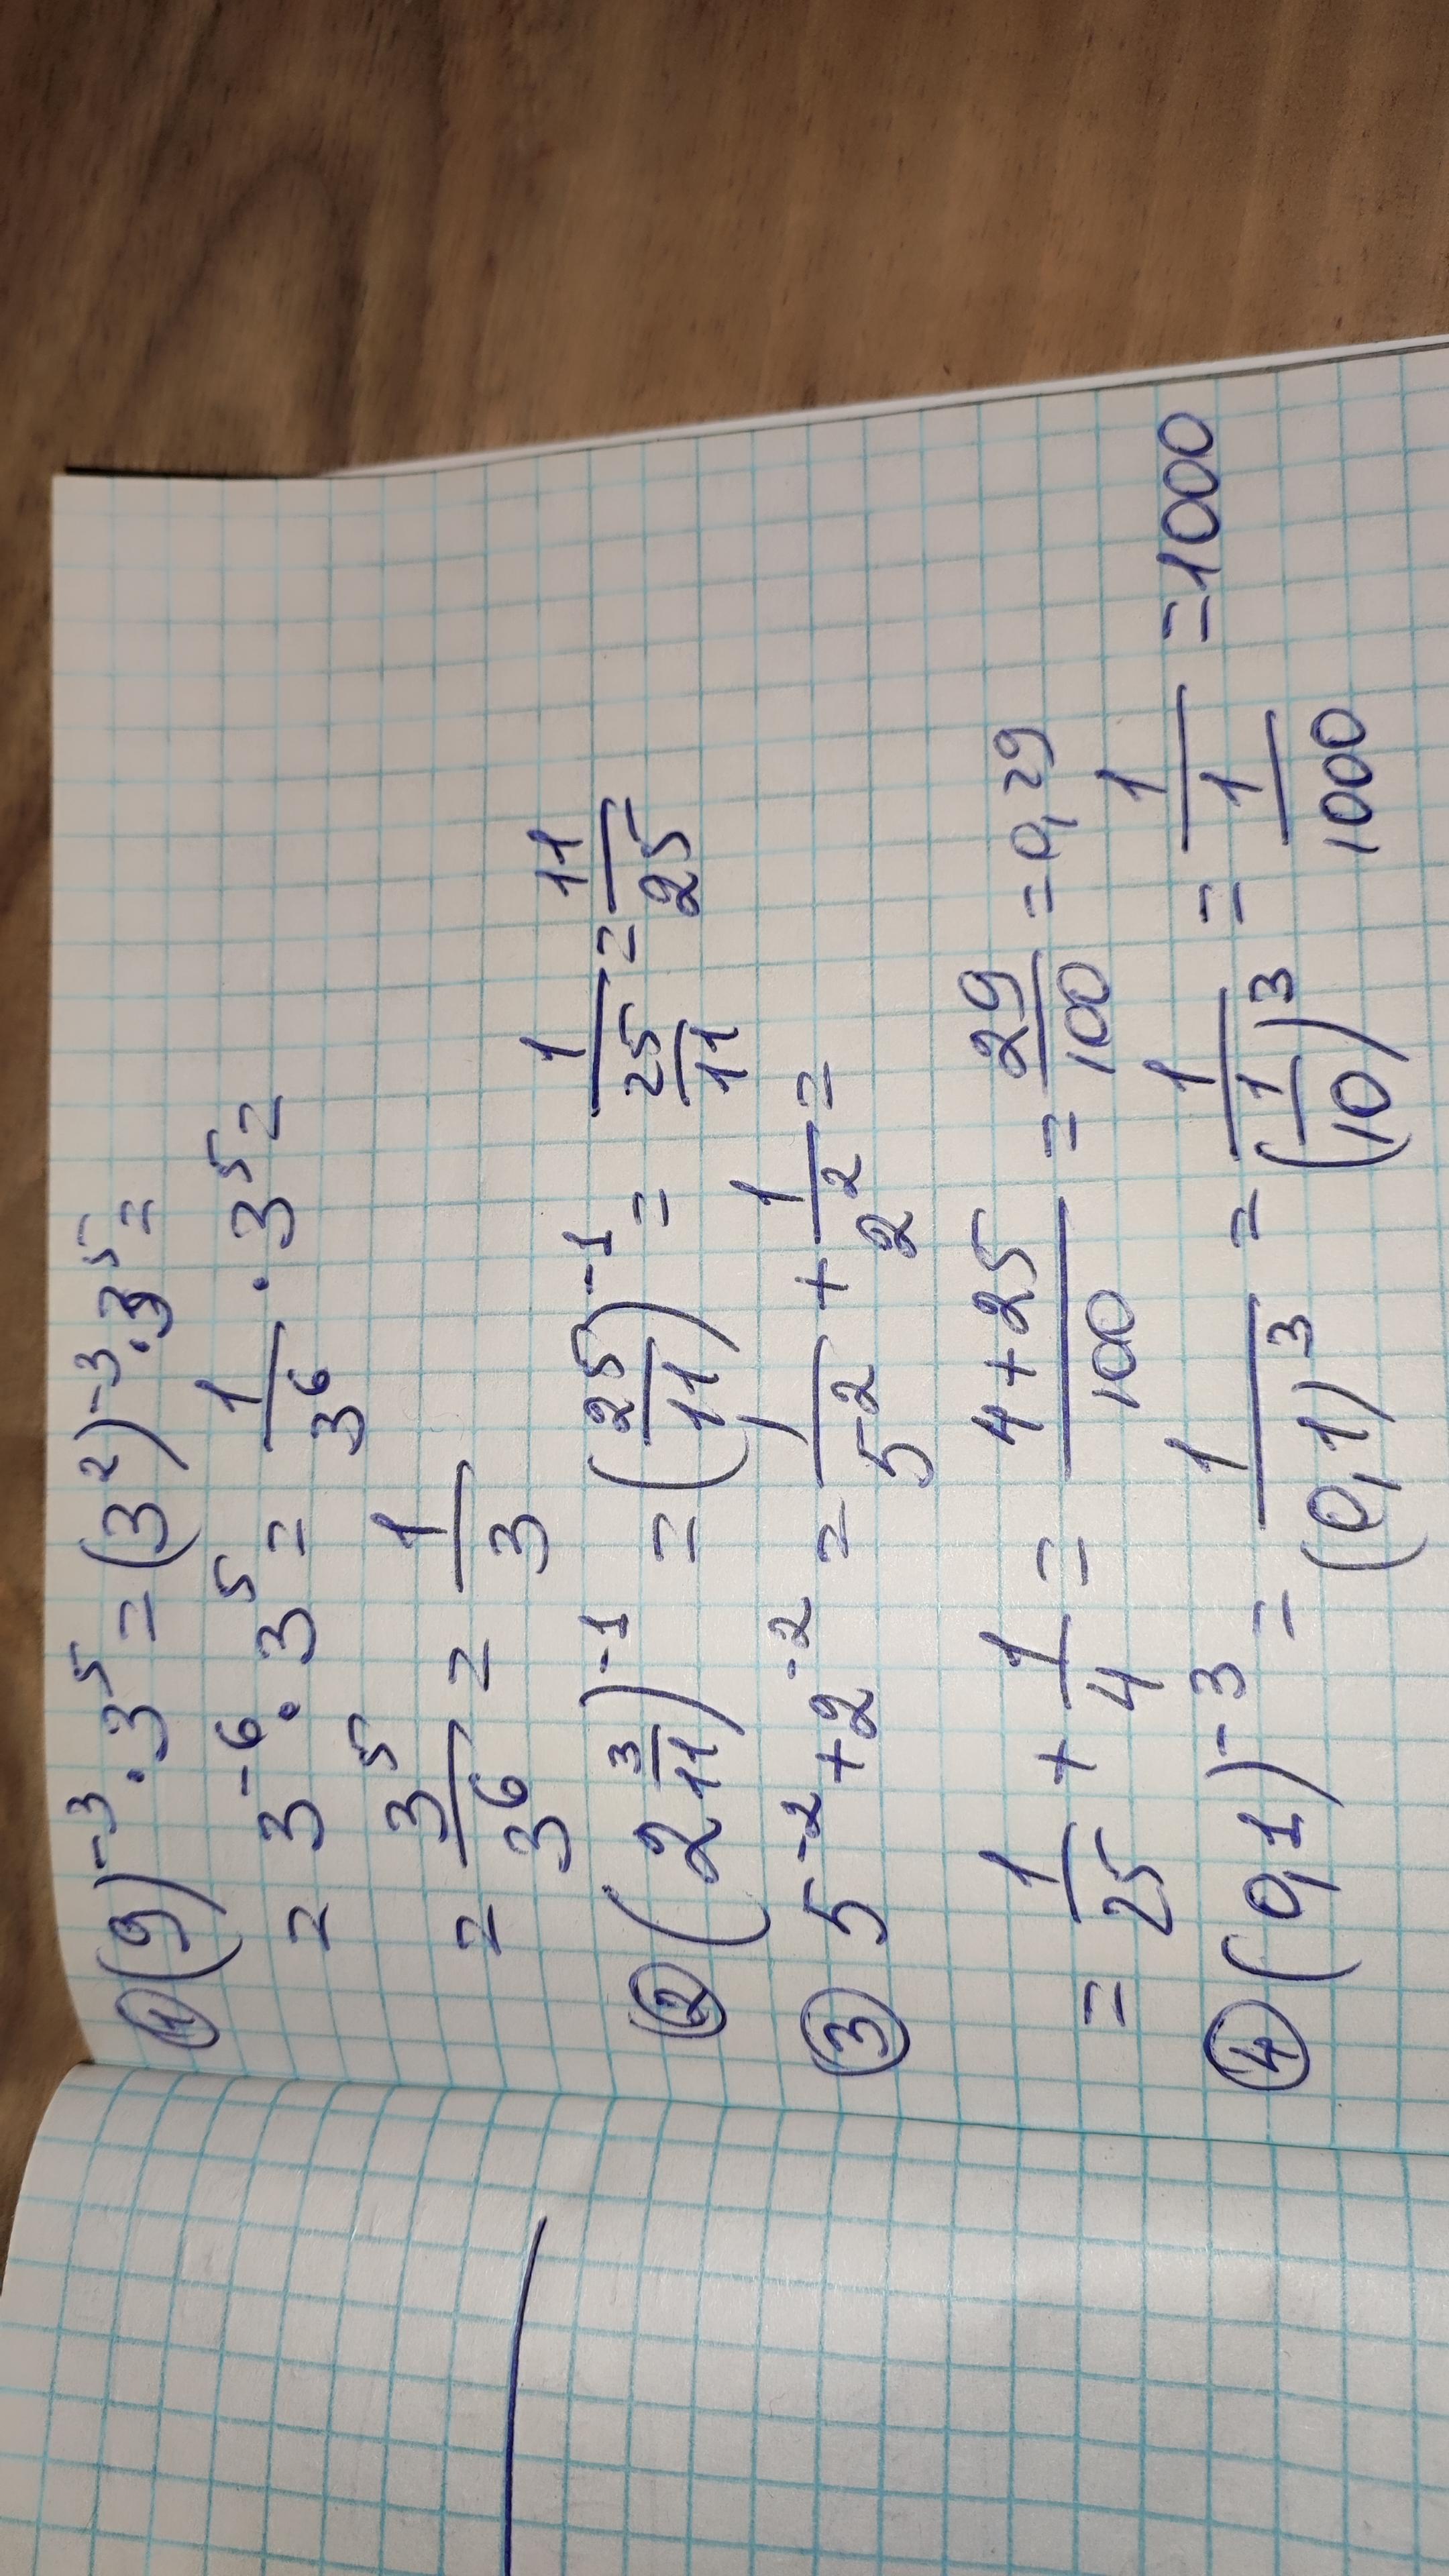 ① (9)⁻³ · 3⁵ = (3²)⁻³ · 3⁵ =
= 3⁻⁶ · 3⁵ = 1/3⁶ · 3⁵ =
= 3⁵/3⁶ = 1/3
② (2 3/11)⁻¹ = (25/11)⁻¹ = 1/(25/11) = 11/25
③ 5⁻² + 2⁻² = 1/5² + 1/2² =
= 1/25 + 1/4 = (4+25)/100 = 29/100 = 0,29
④ (0,1)⁻³ = 1/(0,1)³ = 1/(1/10)³ = 1/(1/1000) = 1000